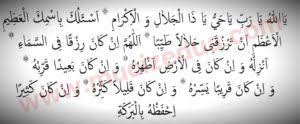 يَااللهُ يَا رَبِّ يَاحَيُّ يَا ذَا الْجَلَالِ وَ الْاِكْرَامِ * اَسْئَلُكَ بِاِسْمِكَ الْعَظِيمِ
الْاَعْظَمِ اَنْ تَرْزُقَنِى حَلَالًا طَيِّبًا * اَللّٰهُمَّ اِنْ كَانَ رِزْقًا فِى السَّمَاءِ *
اَنْزِلْهُ وَ اِنْ كَانَ فِى الْاَرْضِ اَظْهِرْهُ * وَ اِنْ كَانَ بَعِيدًا قَرِّبْهُ *
وَ اِنْ كَانَ قَرِيبًا يَسِّرْهُ * وَ اِنْ كَانَ قَلِيلًا كَثِّرْهُ * وَ اِنْ كَانَ كَثِيرًا *
اِحْفَظْهُ بِالْبَرَكَةِ